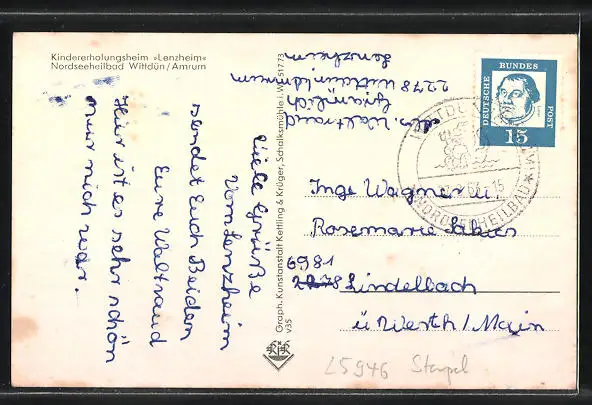 Kindererholungsheim »Lenzheim«
Nordseeheilbad Wittdün/Amrum
Viele Grüße
vom Lenzheim
sendet Euch Beiden
Eure Waltraud
Hier ist es sehr schön
nur nich
Abs. Waltraud
2278 Wittdün
Lenzheim
Graph. Kunstanstalt Kettling & Krüger, Schalksmühle i. W. 51773
V35
DEUTSCHE BUNDES POST
15
NORDSEEHEILBAD
Inge Wagner u.
Rosemarie
6981
2278 Lindelbach
ü Werth/Main
L5946 Stempel